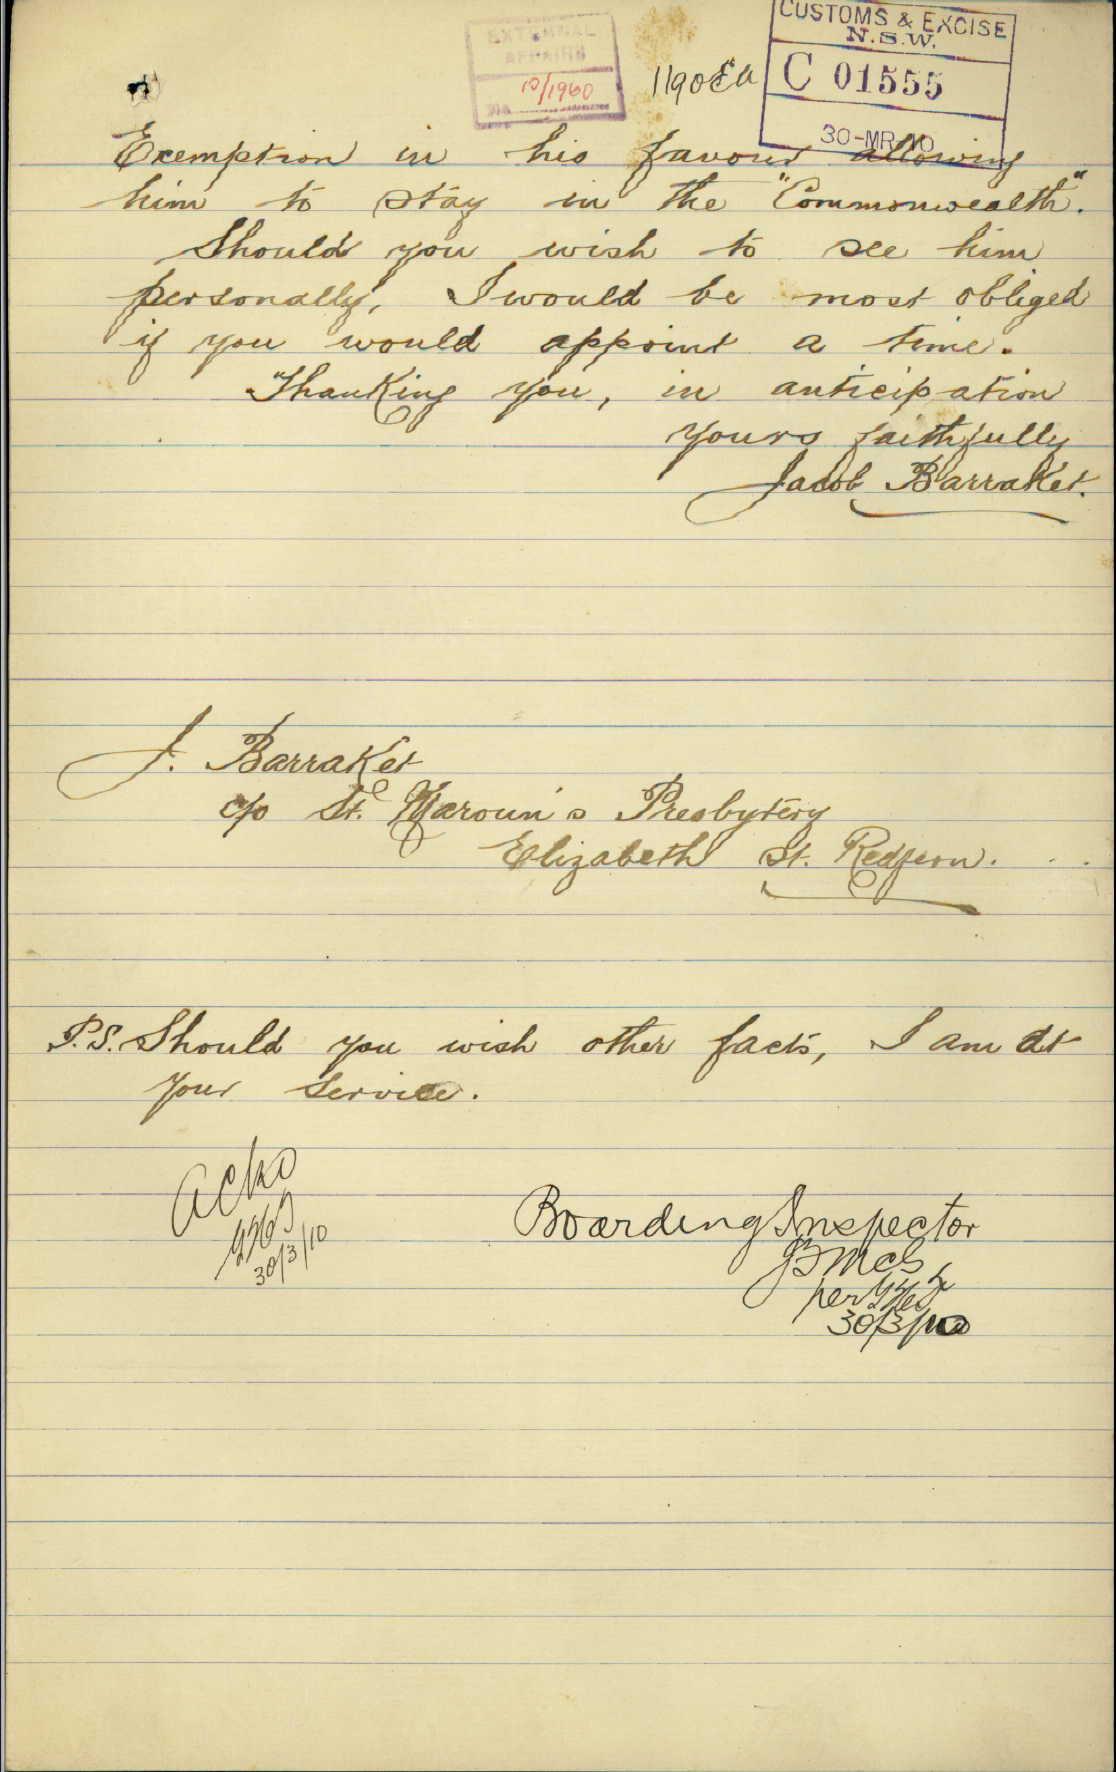 EXTERNAL
AFFAIRS
10/1960
1190 Ea
CUSTOMS & EXCISE
N.S.W.
C 01555
30-MR-10
Exemption in his favour allowing
him to stay in the "Commonwealth".
Should you wish to see him
personally, I would be most obliged
if you would appoint a time.
Thanking you, in anticipation
yours faithfully
Jacob Barraket.
J. Barraket
c/o St. Maroun's Presbytery
Elizabeth St. Redfern.
P.S. Should you wish other facts, I am at
your service.
Ackd
30/3/10
Boarding Inspector
per
30/3/10